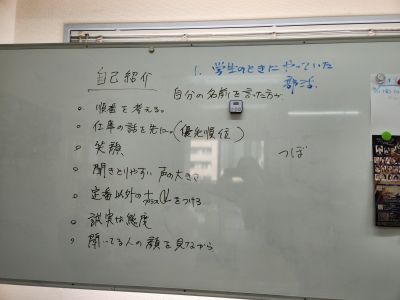 自己紹介
1. 学生のときに やっていた
部活。
自分の名前を言った方が
○ 順番を考える。
○ 仕事の話を先に。(優先順位)
○ 笑顔
○ 聞きとりやすい声の大きさ
○ 定番以外の+plus αをつける
○ 誠実な態度
○ 聞いてる人の顔を見ながら
つぼ